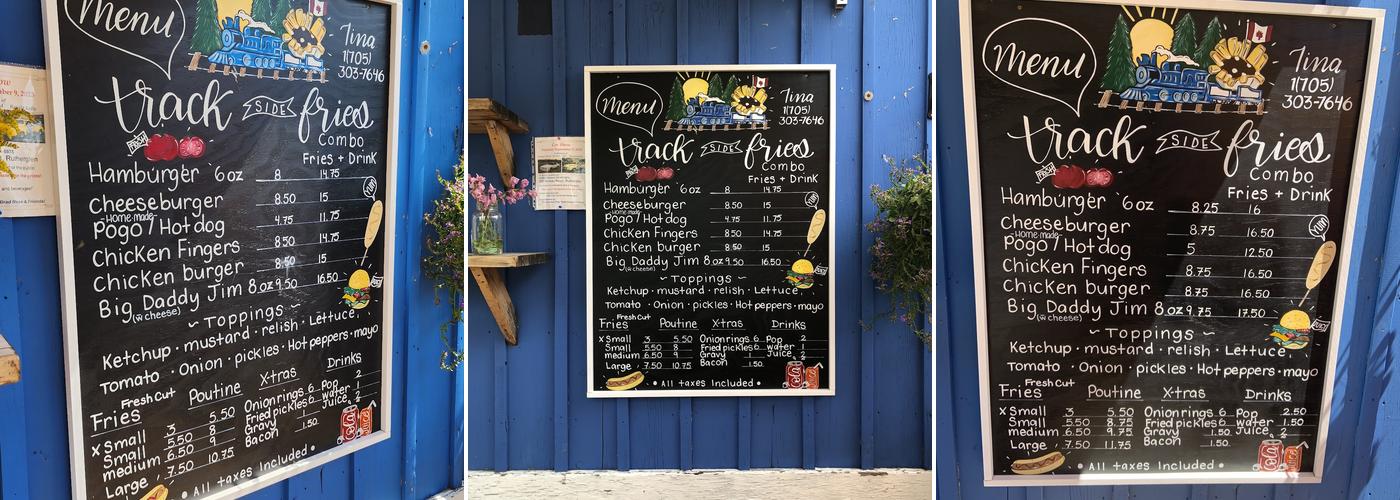 Menu
Tina
1(705)
303-7646
track SIDE fries
FRESH
Combo
Fries + Drink
Hamburger 6oz 8 14.75
Cheeseburger 8.50 15
Home-made
YUM!
Pogo / Hotdog 4.75 11.75
Chicken Fingers 8.50 14.75
Chicken burger 8.50 15
Big Daddy Jim 8oz 9.50 16.50
(w cheese)
~ Toppings ~
Ketchup · mustard · relish · Lettuce,
Tomato · Onion · pickles · Hot peppers · mayo
Fresh Cut
Fries Poutine X-tras Drinks
x Small 3 5.50 Onion rings 6 Pop 2
Small 5.50 8 Fried pickles 6 water 1
medium 6.50 9 Gravy 1 Juice 2
Large 7.50 10.75 Bacon 1.50
• All taxes Included •
Rutherglen
and beverages!
Menu
Tina
1(705)
303-7646
track SIDE fries
Combo
Fries + Drink
Hamburger 6oz 8 14.75
Cheeseburger 8.50 15
Home-made
YUM!
Pogo / Hotdog 4.75 11.75
Chicken Fingers 8.50 14.75
Chicken burger 8.50 15
Big Daddy Jim 8oz 9.50 16.50
(w cheese)
~ Toppings ~
Ketchup · mustard · relish · Lettuce,
Tomato · Onion · pickles · Hot peppers · mayo
Fresh Cut
Fries Poutine X-tras Drinks
x Small 3 5.50 Onion rings 6 Pop 2
Small 5.50 8 Fried pickles 6 water 1
medium 6.50 9 Gravy 1 Juice 2
Large 7.50 10.75 Bacon 1.50
• All taxes Included •
Menu
Tina
1(705)
303-7646
track SIDE fries
FRESH
Combo
Fries + Drink
Hamburger 6oz 8.25 16
Cheeseburger 8.75 16.50
Home-made
YUM!
Pogo / Hotdog 5 12.50
Chicken Fingers 8.75 16.50
Chicken burger 8.75 16.50
Big Daddy Jim 8oz 9.75 17.50
(w cheese)
~ Toppings ~
Ketchup · mustard · relish · Lettuce,
Tomato · Onion · pickles · Hot peppers · mayo
Fresh Cut
Fries Poutine X-tras Drinks
x Small 3 5.50 Onion rings 6 Pop 2.50
Small 5.50 8.75 Fried pickles 6 water 1.50
medium 6.50 9.75 Gravy 1.50 Juice 2
Large 7.50 11.75 Bacon 1.50
• All taxes Included •